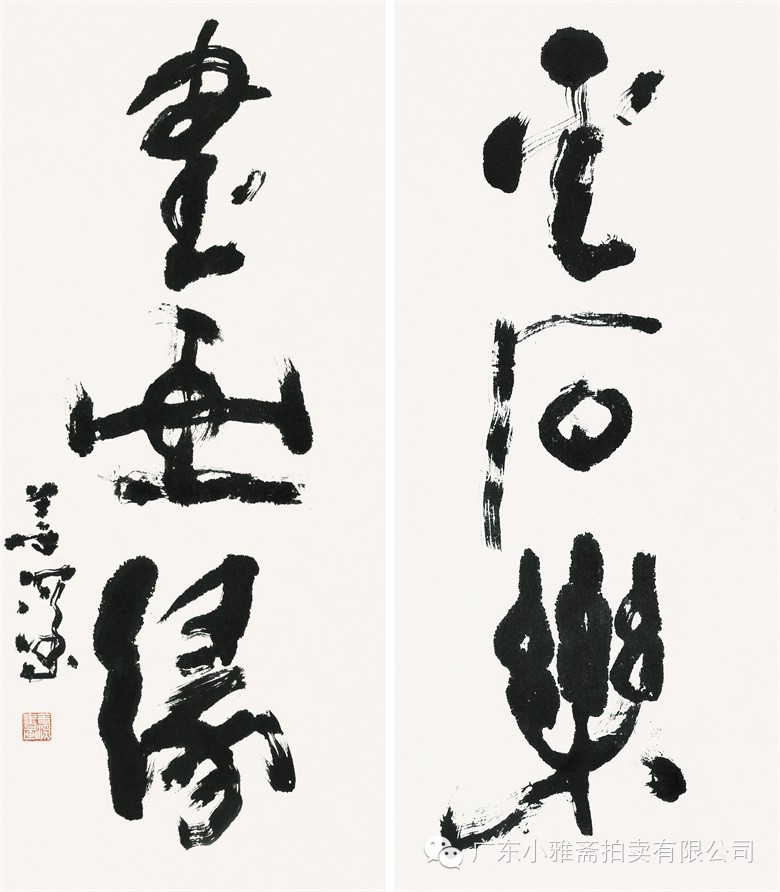 金石樂
書画緣
广东小雅斋拍卖有限公司